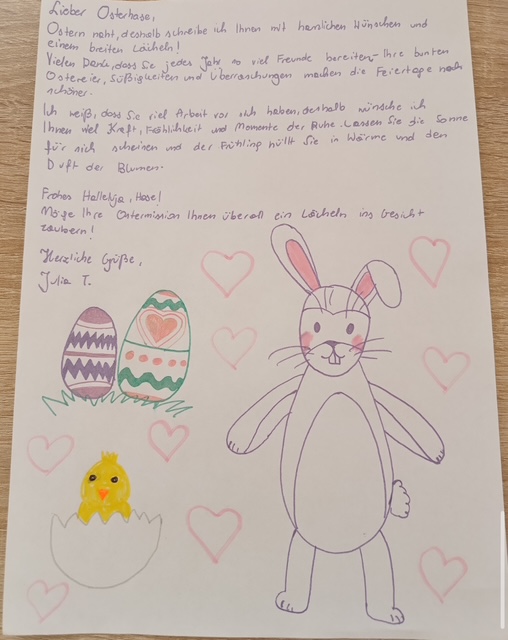 Lieber Osterhase,
Ostern naht, deshalb schreibe ich Ihnen mit herzlichen Wünschen und
einem breiten Lächeln!
Vielen Dank, dass Sie jedes Jahr so viel Freude bereiten - Ihre bunten
Ostereier, Süßigkeiten und Überraschungen machen die Feiertage noch
schöner.
Ich weiß, dass Sie viel Arbeit vor sich haben, deshalb wünsche ich
Ihnen viel Kraft, Fröhlichkeit und Momente der Ruhe. Lassen Sie die Sonne
für sich scheinen und der Frühling hüllt Sie in Wärme und den
Duft der Blumen.
Frohes Halleluja, Hase!
Möge Ihre Ostermission Ihnen überall ein Lächeln ins Gesicht
zaubern!
Herzliche Grüße,
Julia T.